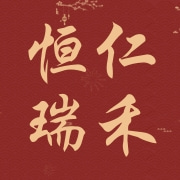 恒仁
瑞禾